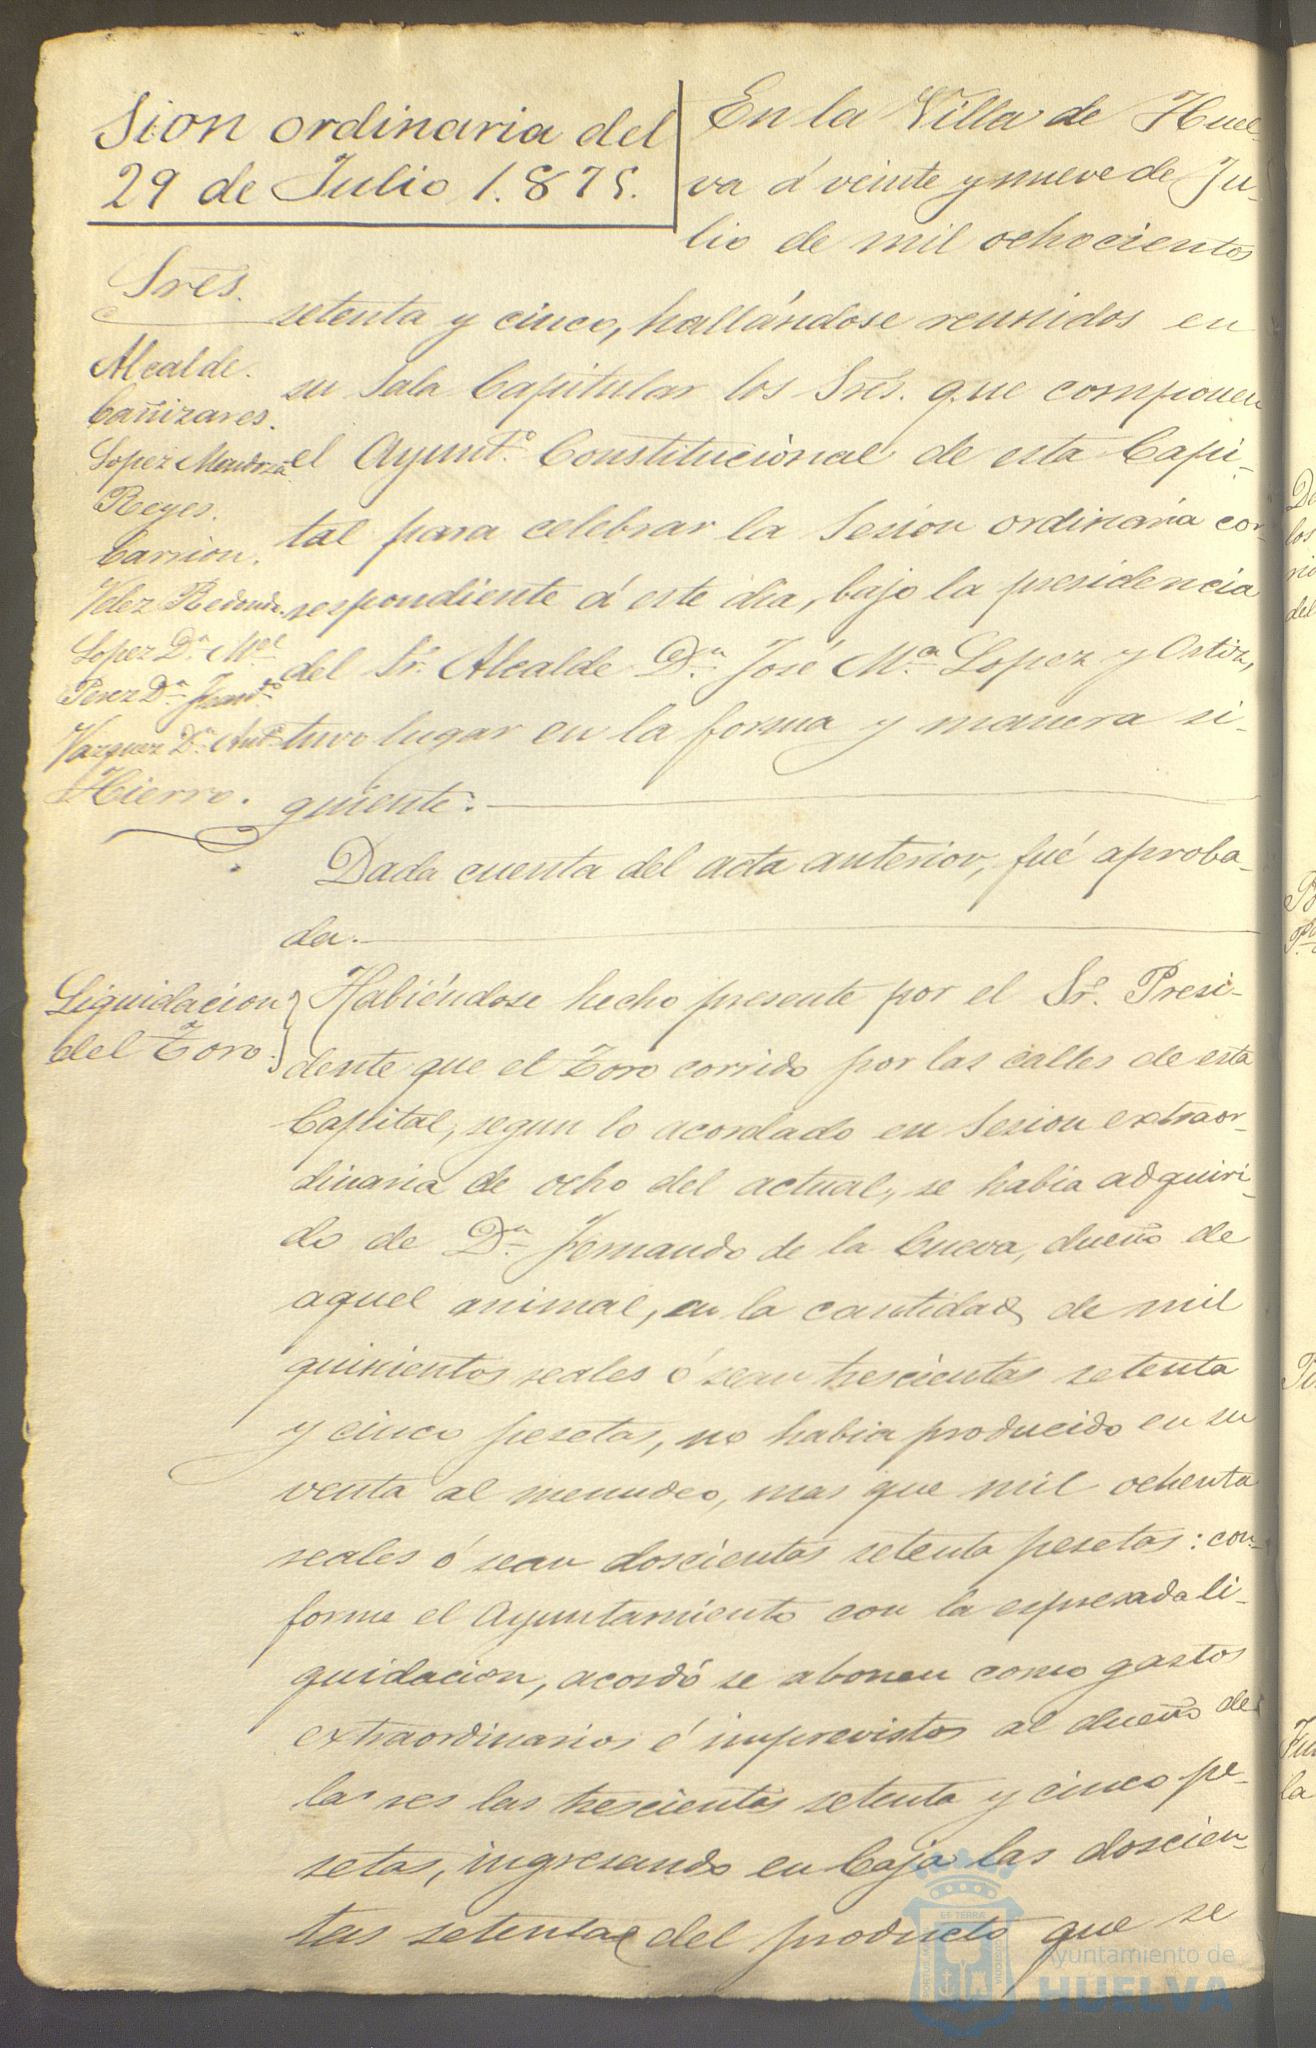 Sion ordinaria del
29 de Julio 1.875.
Sres.
Alcalde.
Cañizares.
Lopez Mendoza
Reyes.
Carrion.
Velez Redondo.
Lopez Dn. Mel
Perez Dn. Franco
Vazquez Dn. Anto
Hierro.
En la Villa de Huel-
va á veinte y nueve de Ju-
lio de mil ochocientos
setenta y cinco, hallándose reunidos en
su Sala Capitular los Sres. que componen
el Ayunto. Constitucional de esta Capi-
tal para celebrar la Sesion ordinaria cor-
respondiente á este dia, bajo la presidencia
del Sr. Alcalde Dn. José Ma. Lopez y Ortiz,
tuvo lugar en la forma y manera si-
guiente.
Dada cuenta del acta anterior, fué aproba-
da.
Liquidacion
del Toro.
Habiéndose hecho presente por el Sr. Presi-
dente que el Toro corrido por las calles de esta
Capital, segun lo acordado en Sesion extraor-
dinaria de ocho del actual, se habia adquiri-
do de Dn. Fernando de la Cueva, dueño de
aquel animal, en la cantidad de mil
quinientos reales ó sean trescientas setenta
y cinco pesetas, no habia producido en su
venta al menudeo, mas que mil ochenta
reales ó sean doscientas setenta pesetas: con-
forme el Ayuntamiento con la espresada li-
quidacion, acordó se abonen como gastos
extraordinarios é imprevistos al dueño de
la res las trescientas setenta y cinco pe-
setas, ingresando en Caja las doscien-
tas setenta del producto que se
Ayuntamiento de
HUELVA